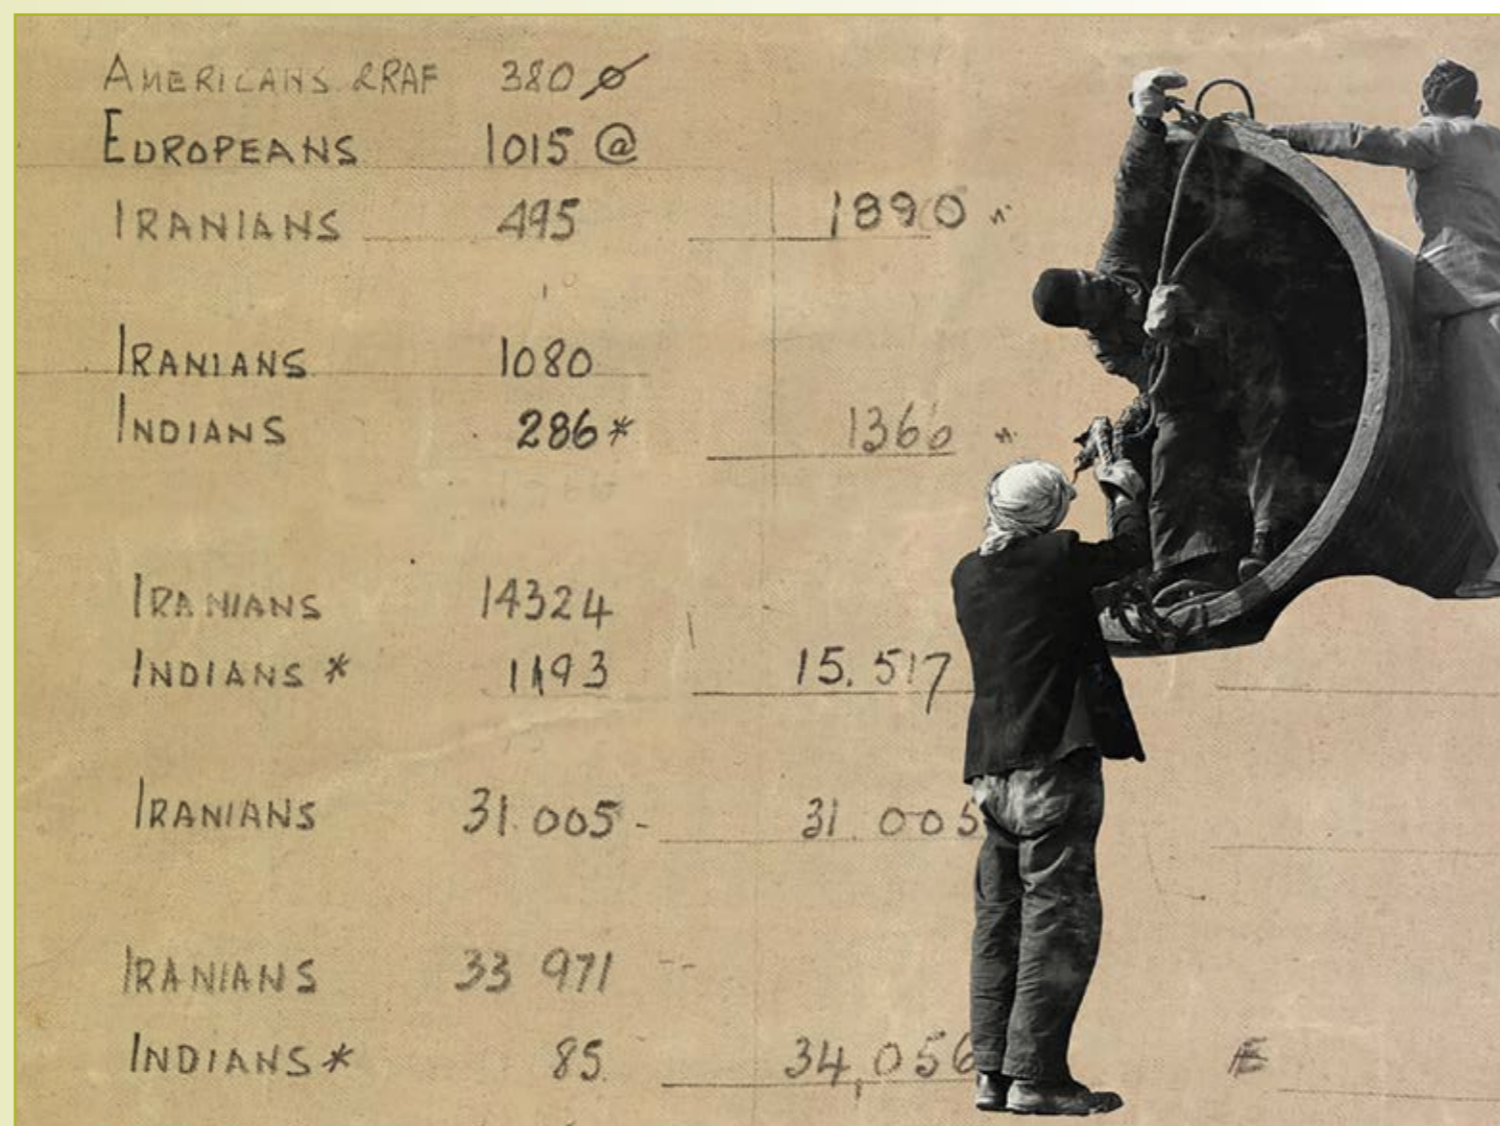 AMERICANS & RAF 380 ∅
EUROPEANS 1015 @
IRANIANS 495 1890 "
IRANIANS 1080
INDIANS 286* 1366 "
IRANIANS 14324
INDIANS * 1193 15.517
IRANIANS 31.005- 31.005
IRANIANS 33 971 --
INDIANS* 85. 34,056